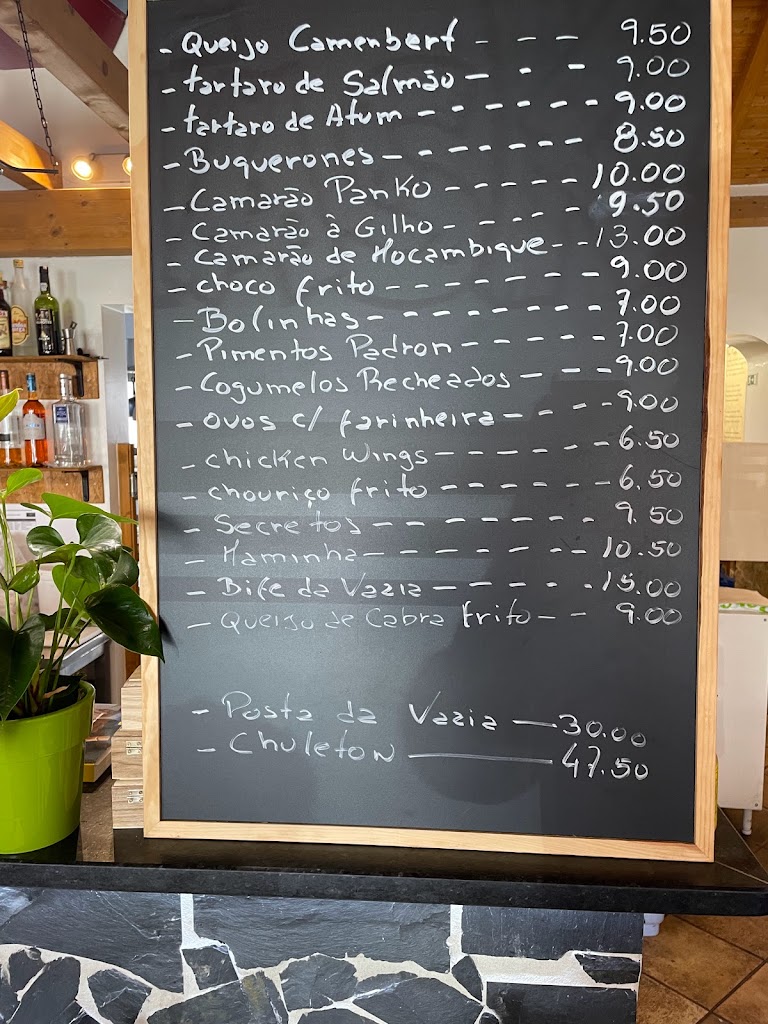 - Queijo Camenbert - - - - 9.50
- tartaro de Salmão - - - 9.00
- tartaro de Atum - - - - - - - 9.00
- Buquerones - - - - - - - - 8.50
- Camarão Panko - - - - - - - 10.00
- Camarão à Gilho - - - - - - 9.50
- Camarão de Moçambique - - 13.00
- choco frito - - - - - - - - - 9.00
- Bolinhas - - - - - - - - - 7.00
- Pimentos Padron - - - - - - 7.00
- Cogumelos Recheados - - - - - 9.00
- ovos c/ farinheira - - - - - 9.00
- chicken Wings - - - - - - - - 6.50
- chouriço frito - - - - - - - - 6.50
- Secretos - - - - - - - - - 9.50
- Maminha - - - - - - - - - - 10.50
- Bife da Vazia - - - - - - 15.00
- Queijo de Cabra frito - - 9.00
- Posta da Vazia — 30.00
- Chuleton ——— 47.50